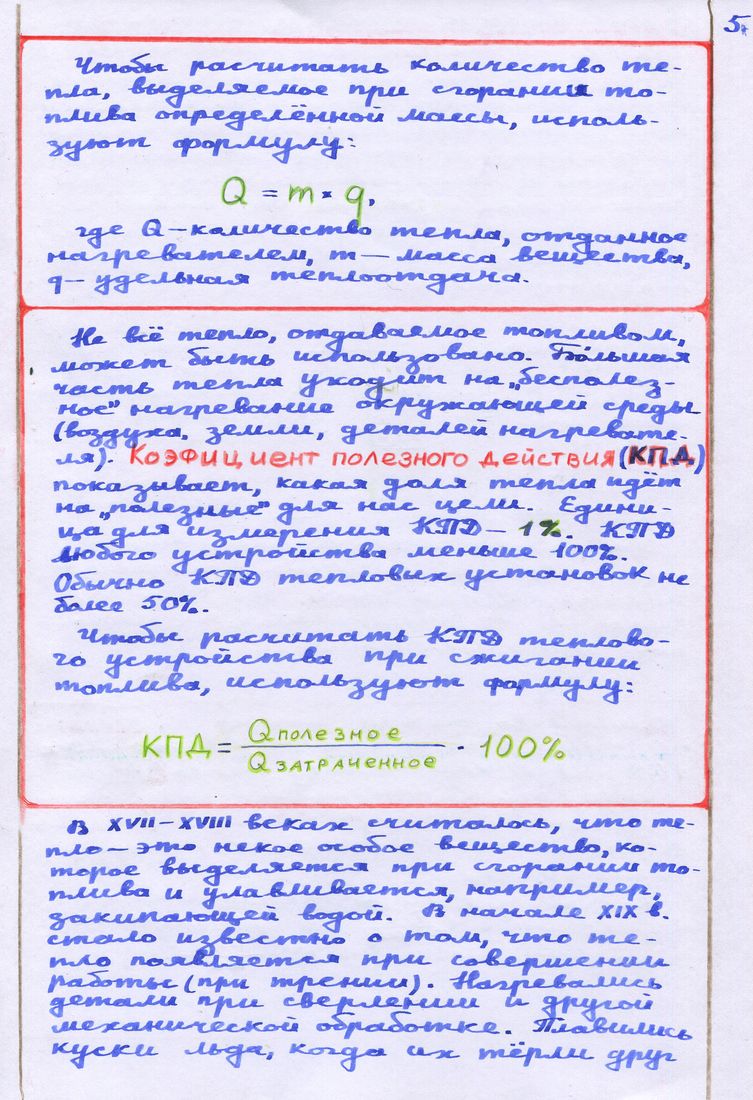 5.
Чтобы расчитать количество те-
пла, выделяемое при сгорании то-
плива определённой массы, исполь-
зуют формулу:
Q = m · q,
где Q – количество тепла, отданное
нагревателем, m – масса вещества,
q – удельная теплоотдача.
Не всё тепло, отдаваемое топливом,
может быть использовано. Бо́льшая
часть тепла уходит на „бесполез-
ное" нагревание окружающей среды
(воздуха, земли, деталей нагревате-
ля). Коэфициент полезного действия (КПД)
показывает, какая доля тепла идёт
на „полезные" для нас цели. Едини-
ца для измерения КПД – 1%. КПД
любого устройства меньше 100%.
Обычно КПД тепловых установок не
более 50%.
Чтобы расчитать КПД теплово-
го устройства при сжигании
топлива, используют формулу:
КПД = Qполезное / Qзатраченное · 100%
В XVII – XVIII веках считалось, что те-
пло – это некое особое вещество, ко-
торое выделяется при сгорании то-
плива и улавливается, например,
закипающей водой. В начале XIX в.
стало известно о том, что те-
пло появляется при совершении
работы (при трении). Нагревались
детали при сверлении и другой
механической обработке. Плавились
куски льда, когда их тёрли друг